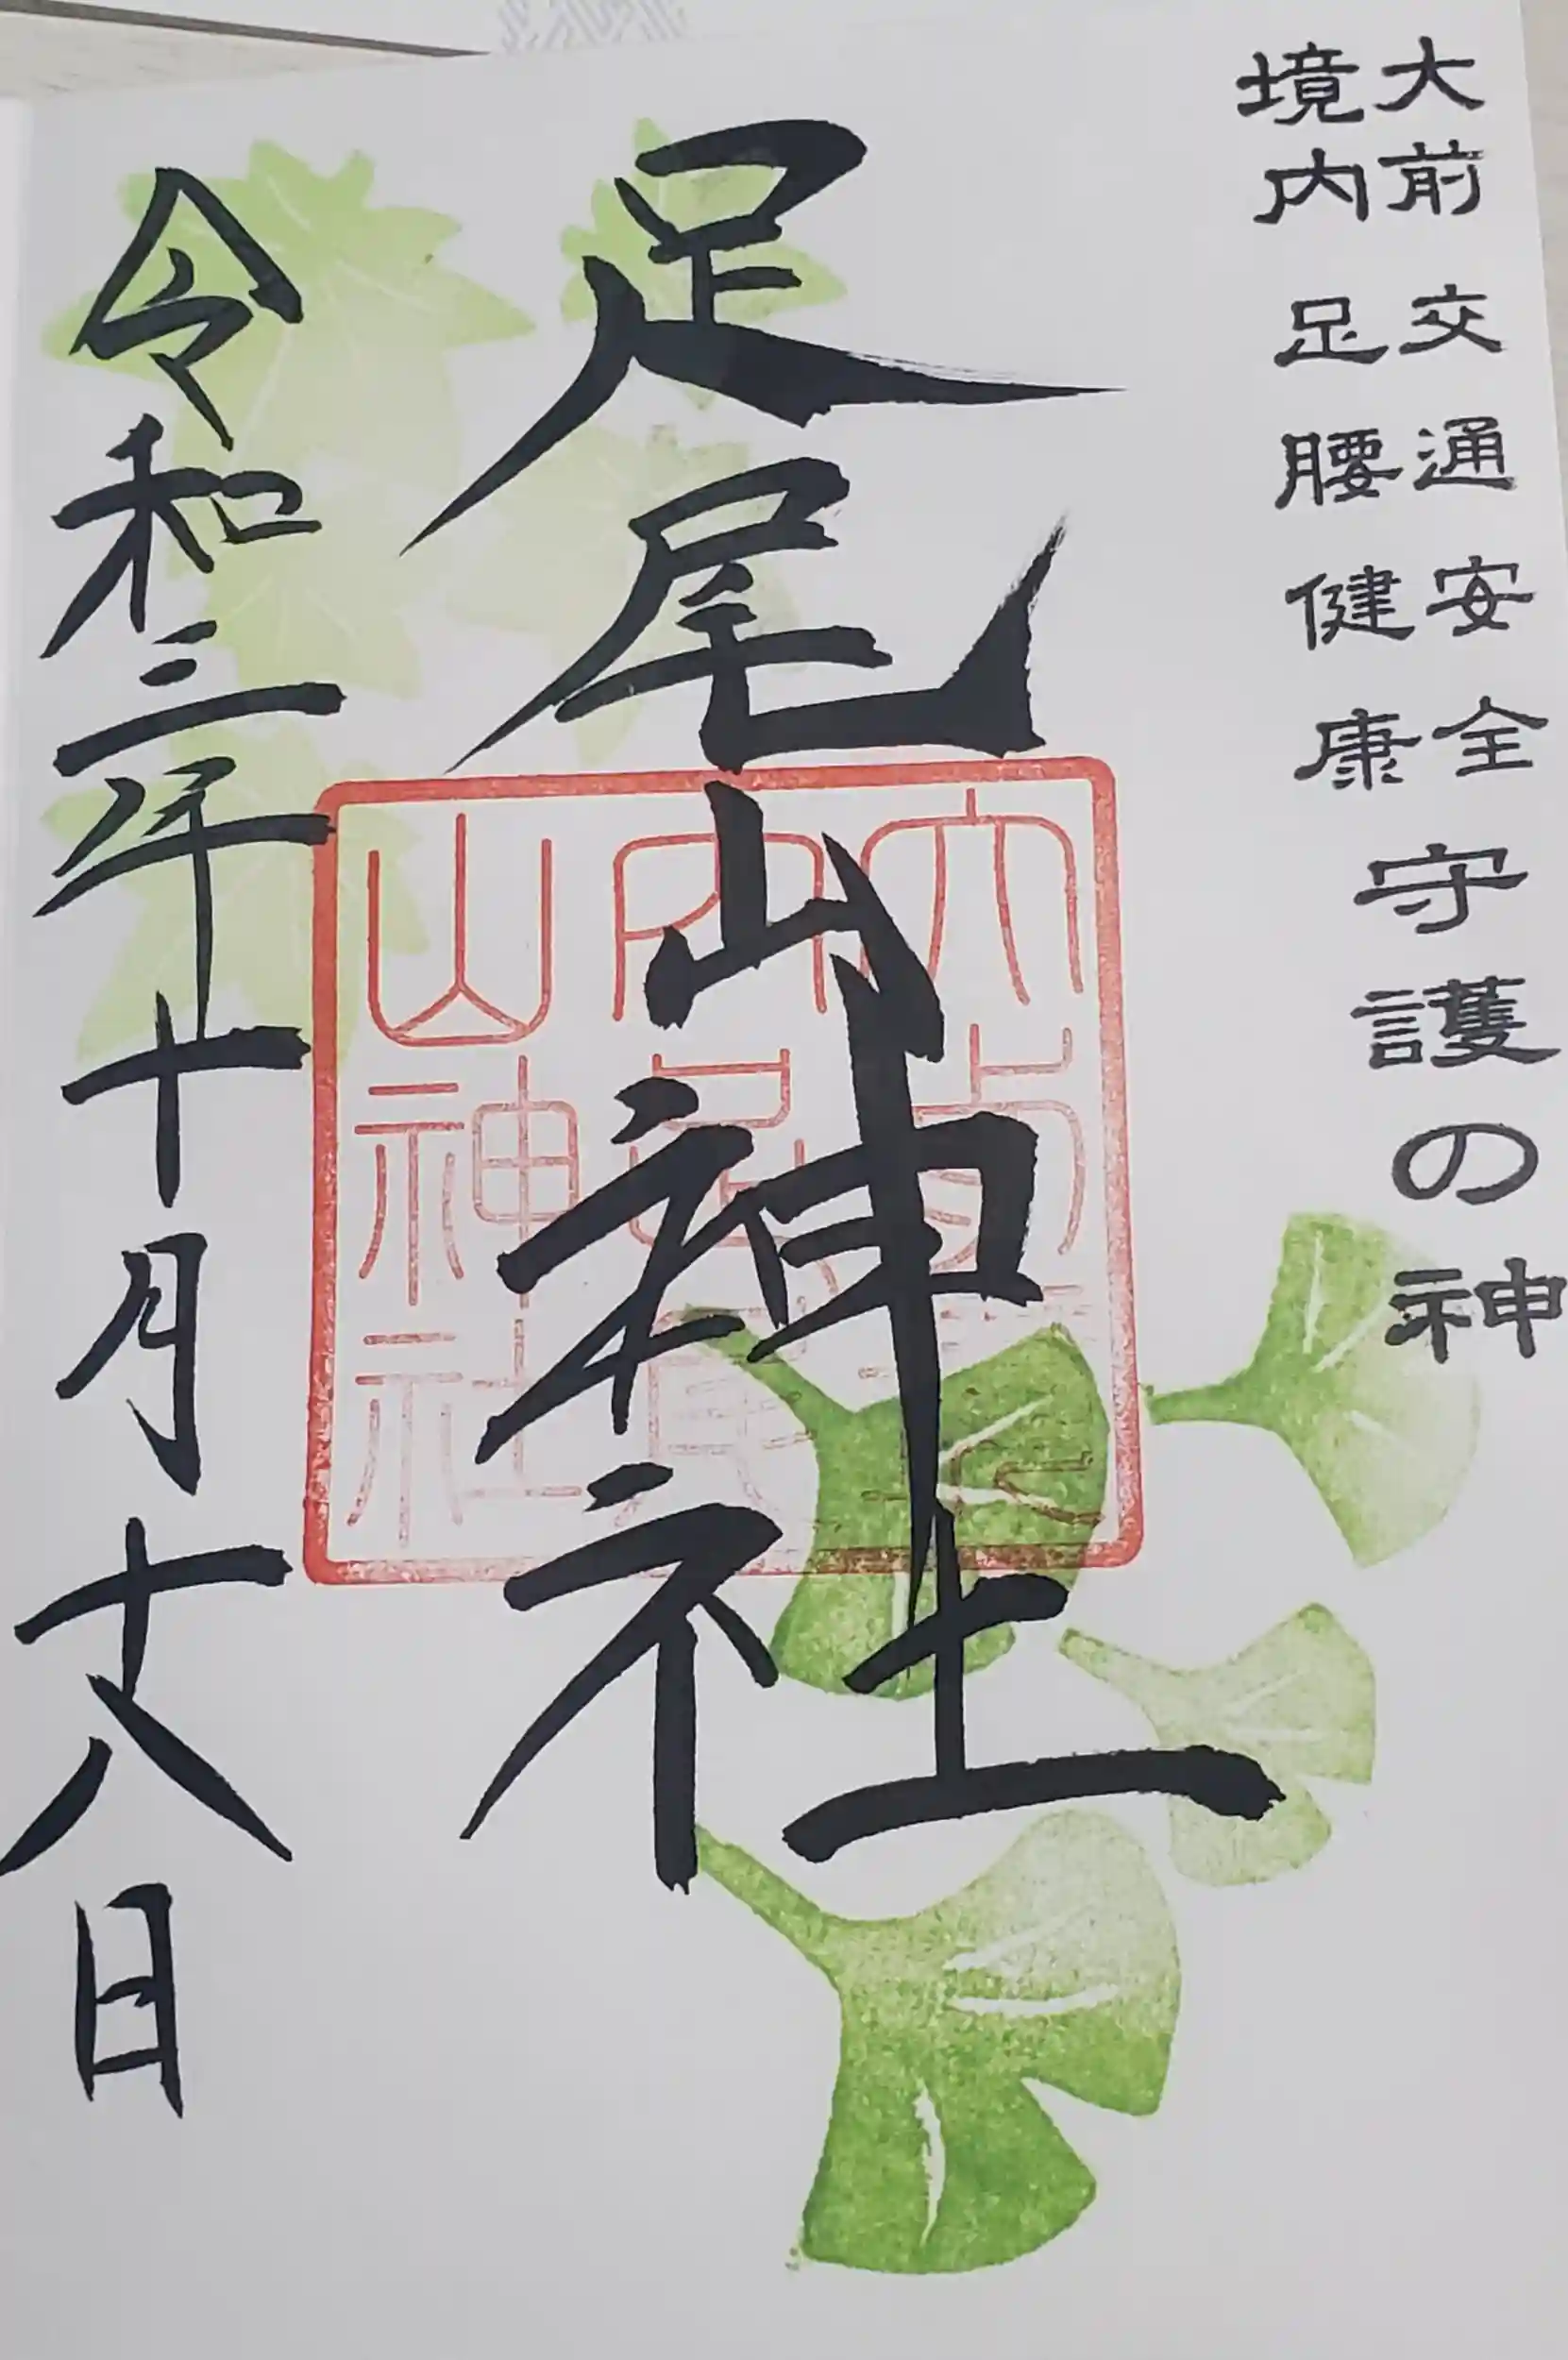 大前 交通安全
境内 足腰健康
守護の神
足尾山神社
内足尾
山神社
令和三年十月十八日